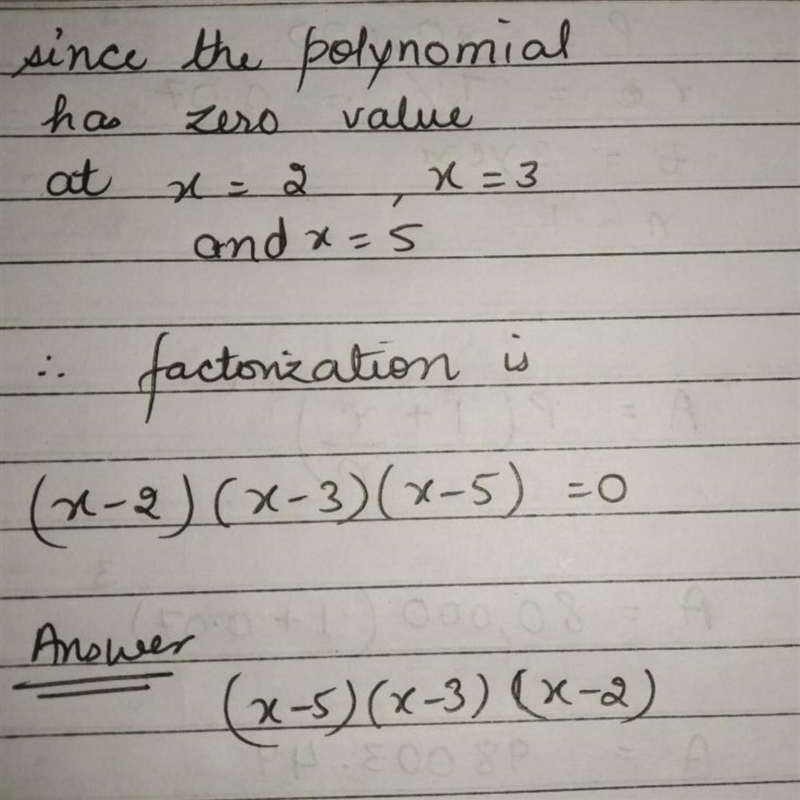 since the polynomial
has zero value
at x = 2 , x = 3
and x = 5
∴ factorization is
(x-2)(x-3)(x-5) = 0
Answer
(x-5)(x-3)(x-2)